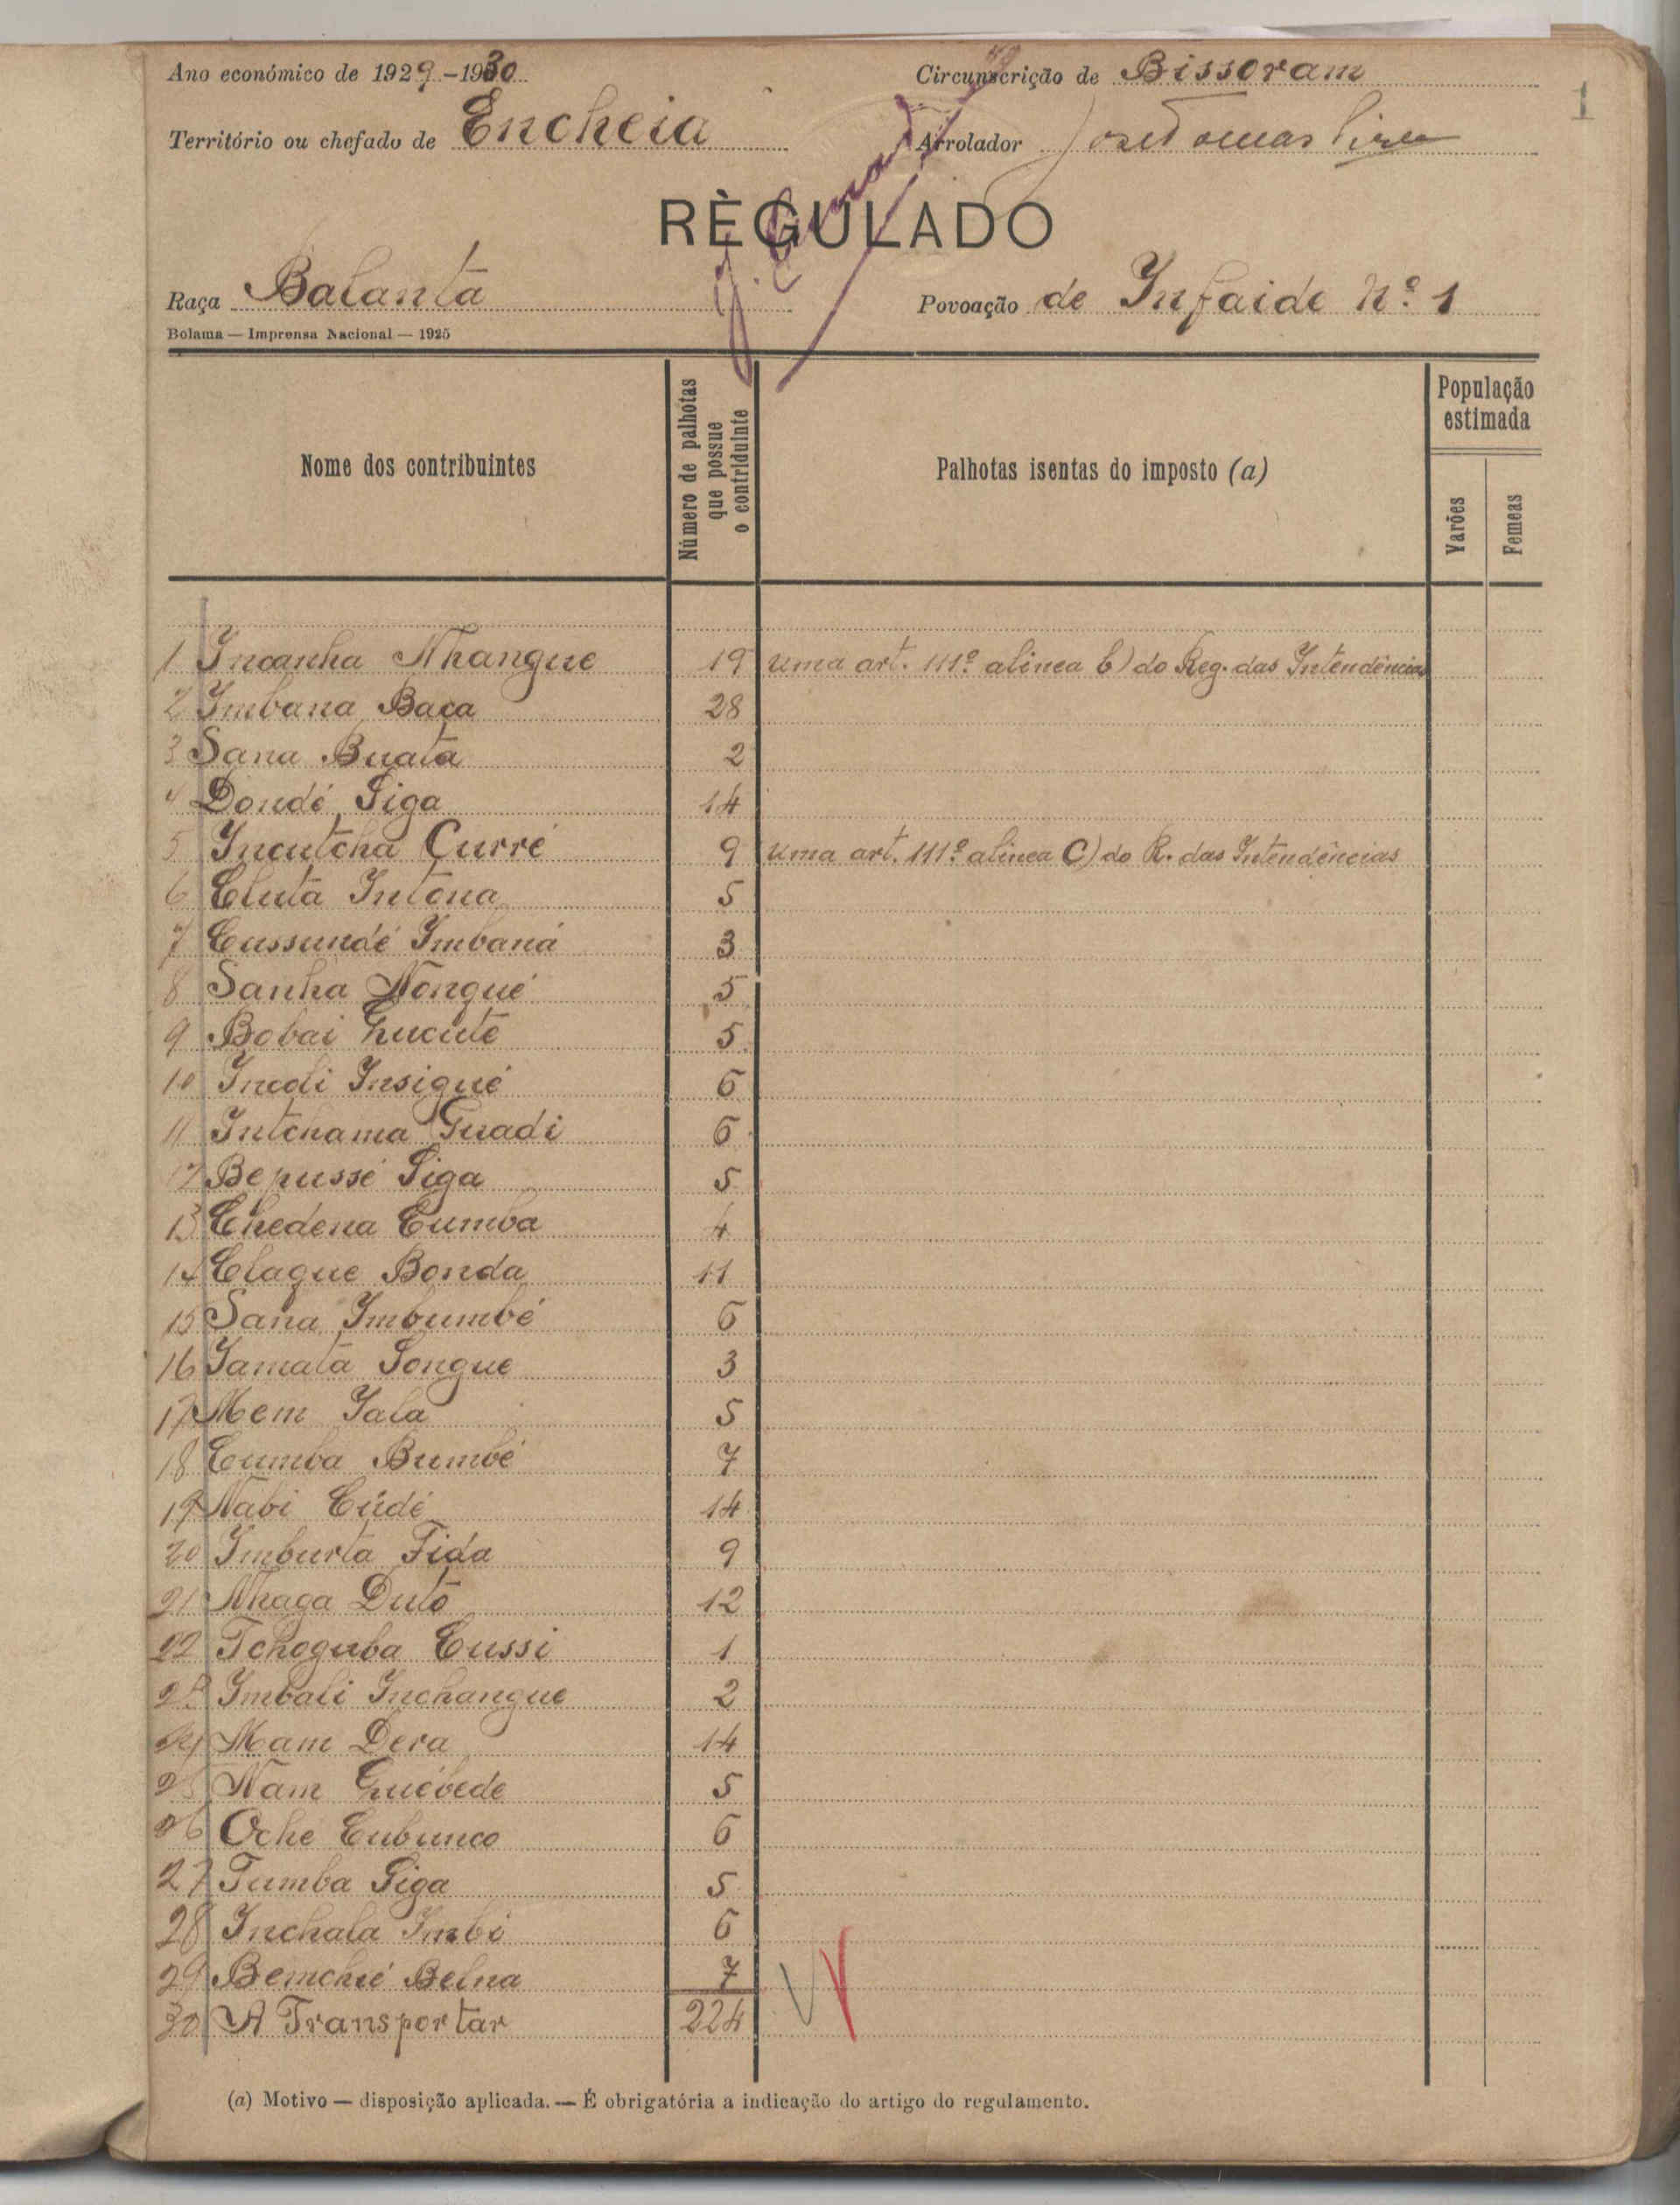 1
Ano económico de 1929-1930 Circunscrição de Bissoram
Território ou chefado de Encheia Arrolador José Tomas
RÈGULADO
Raça Balanta Povoação de Infaide Nº 1
Bolama — Imprensa Nacional — 1925
Nome dos contribuintes
Número de palhotas que possue o contriduinte
Palhotas isentas do imposto (a)
População estimada
Varões Femeas
1 Incanha Nhangue 19 uma art. 111º alinea b) do Reg. das Intendências
2 Imbana Baca 28
3 Sana Buata 2
4 Dondé Siga 14
5 Incutcha Curré 9 uma art. 111º alinea C) do R. das Intendências
6 Cluta Intona 5
7 Cussundé Imbaná 3
8 Sanha Nongué 5
9 Bobai Gucute 5
10 Incoli Insigué 6
11 Intchama Guadi 6
12 Bepussé Siga 5
13 Chedena Cumba 4
14 Claque Bonda 11
15 Sana Imbumbé 6
16 Iamata Songue 3
17 Mem Iala 5
18 Cumba Bumbé 7
19 Nabi Cudé 14
20 Imburta Fida 9
21 Nhaga Duto 12
22 Tchoguba Cussi 1
23 Imbali Inchangue 2
24 Mam Dera 14
25 Nam Guébede 5
26 Oché Cubunco 6
27 Tumba Siga 5
28 Inchala Imbi 6
29 Bemchié Belna 7
30 A Transportar 224
(a) Motivo — disposição aplicada. — É obrigatória a indicação do artigo do regulamento.